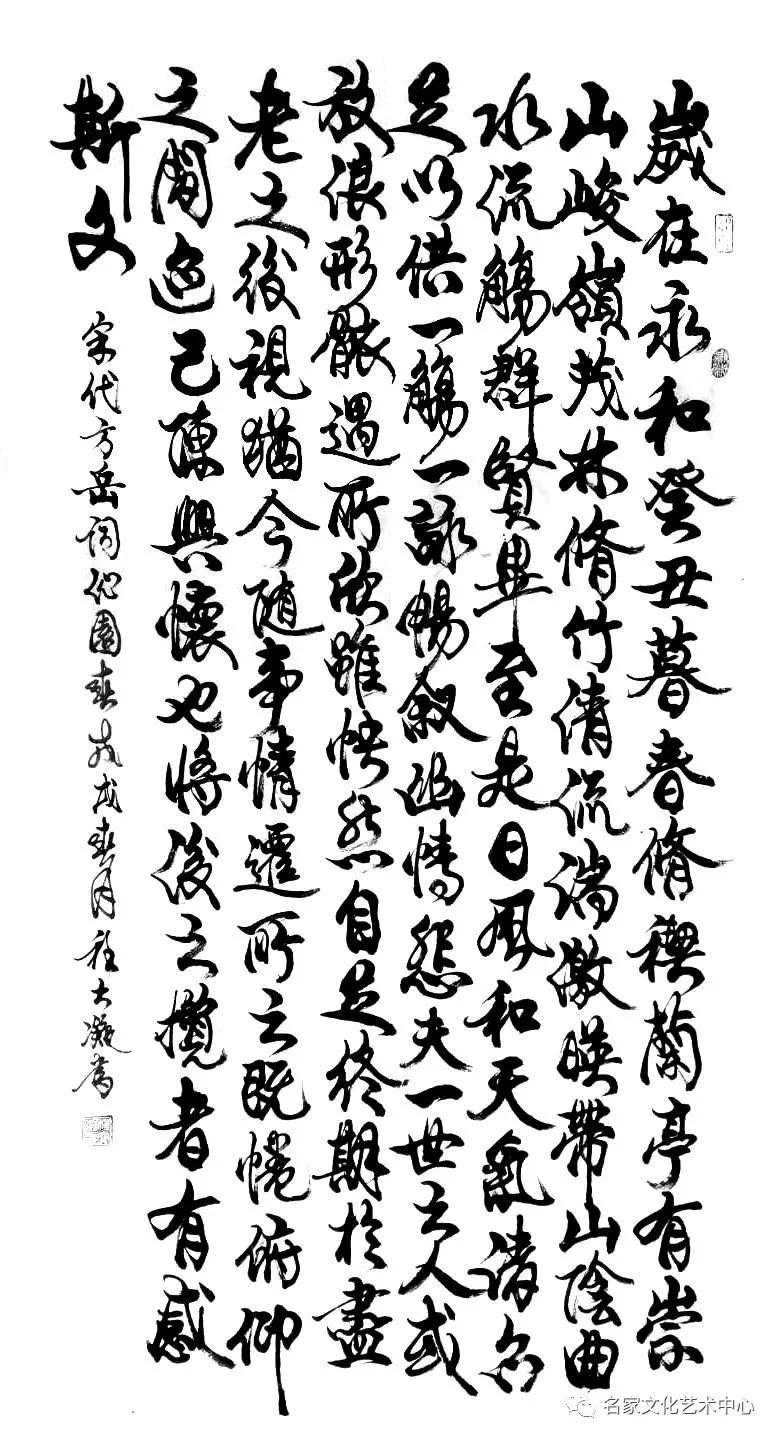 歲在永和癸丑暮春脩禊蘭亭有崇
山峻嶺茂林脩竹清流湍激暎帶山陰曲
水流觴群賢畢至是日風和天氣清亦
足以供一觴一詠暢叙幽情悲夫一世之人或
放浪形骸遇所欣雖快然自足終期於盡
老之後視猶今隨事情遷所之既惓俯仰
之間迹已陳興懷也將後之攬者有感
斯文
宋代方岳詞沁園春戊戌春月大凝書
名家文化艺术中心